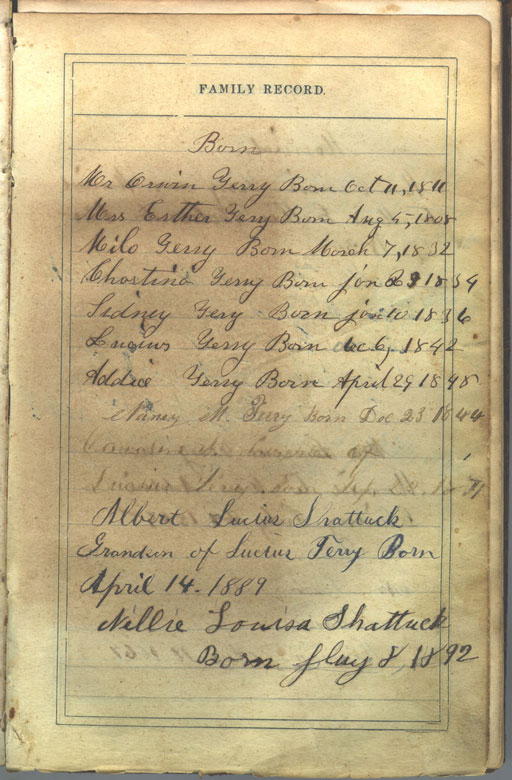 FAMILY RECORD.
Born
Mr Orwin Gerry Born Oct 11, 1811
Mrs Esther Gerry Born Aug 5, 1808
Milo Gerry Born March 7, 1832
Gerry Born Jan 1834
Sidney Gery Born Jan 10 1836
Lucius Gerry Born Dec 6, 1842
Addie Gerry Born April 29 1848
Nancy M. Gerry Born Dec 23 1844
of
Lucius
Albert Lucius Shattuck
Grandson of Lucius Terry Born
April 14. 1889
Nillie Louisa Shattuck
Born May 8, 1892